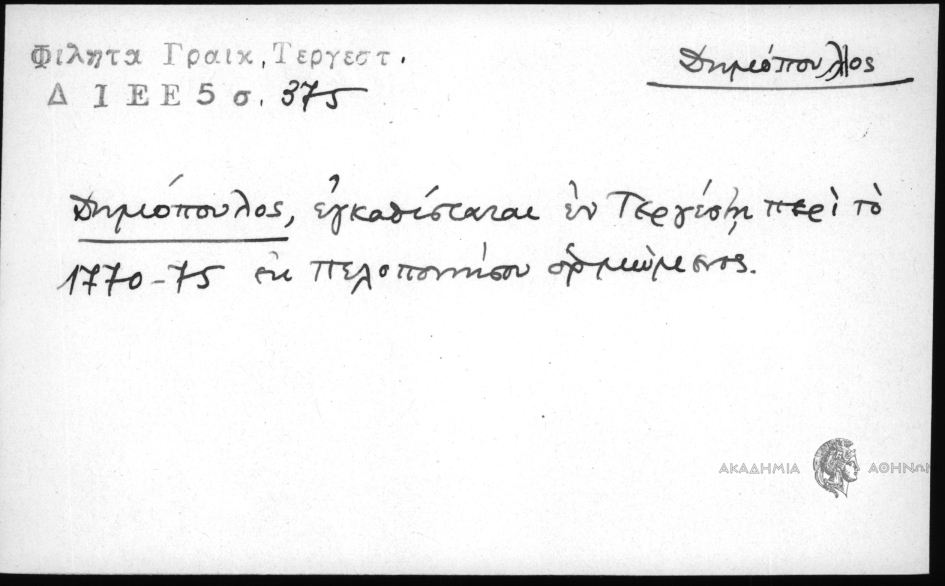 Φιλητα Γραικ, Τεργεστ.
Δημόπουλλος
Δ Ι Ε Ε 5 σ. 375
Δημόπουλος, ἐγκαθίσταται ἐν Τεργέστῃ περὶ τὸ
1770-75 ἐκ Πελοποννήσου ὁρμώμενος.
ΑΚΑΔΗΜΙΑ ΑΘΗΝΩΝ